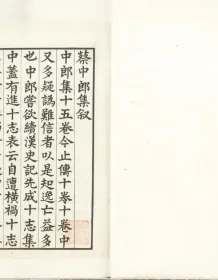 蔡中郎集叙
中郎集十五卷今止傳十卷十卷中
又多疑譌難信者以是知逸亡益多
也中郎嘗欲續漢史記先成十志集
中蓋有進十志表云自遭橫禍十志